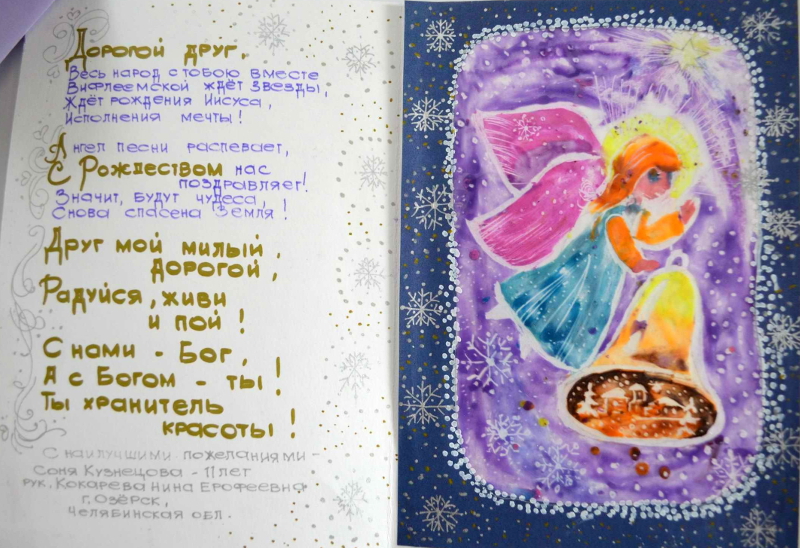 Дорогой друг,
Весь народ с тобою вместе
Вифлеемской ждёт звезды,
Ждёт рождения Иисуса,
Исполнения мечты!
Ангел песни распевает,
С Рождеством нас
поздравляет!
Значит, будут чудеса,
Снова спасена Земля!
Друг мой милый,
дорогой,
Радуйся, живи
и пой!
С нами - Бог,
А с Богом - ты!
Ты хранитель
красоты!
С наилучшими пожеланиями -
Соня Кузнецова - 11 лет
рук. Кокарева Нина Ерофеевна
г. Озёрск,
Челябинская обл.